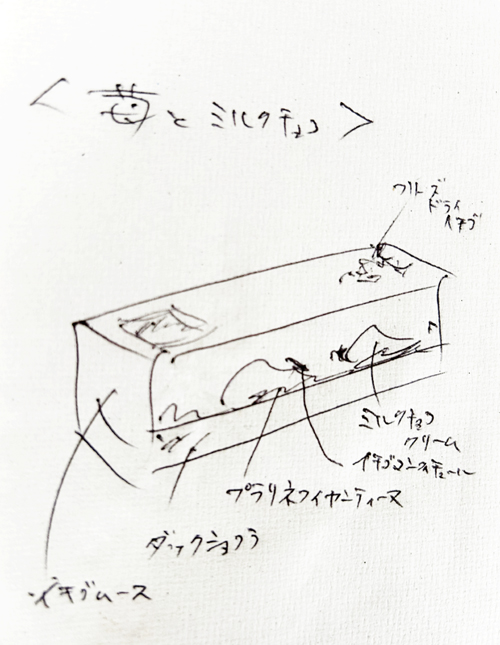 <苺とミルクチョコ>
フリーズ
ドライ
イチゴ
ミルクチョコ
クリーム
イチゴコンフィチュール
プラリネフイヤンティーヌ
ダックショコラ
イチゴムース